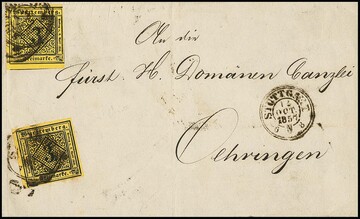 An die
Fürstl. H. Domänen Canzlei
STUTTGART
12
OCT
1857
Oehringen
Württemberg.
Freimarke.
Württemberg.